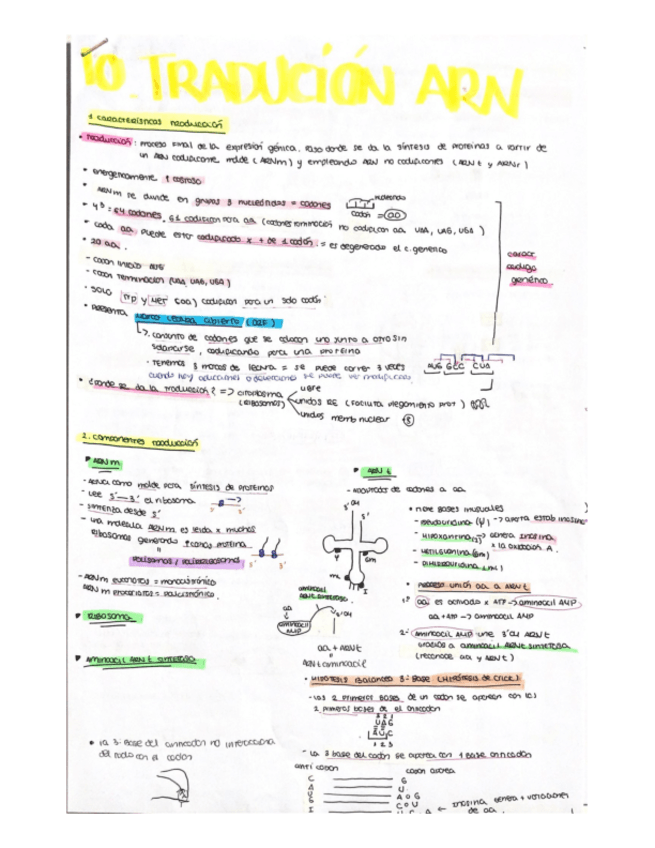 10. TRADUCIÓN ARN
1 características traducción
• traducción: proceso final de la expresión génica. Paso donde se da la síntesis de proteínas a partir de
un ARN codificante molde (ARNm) y empleando ARN no codificantes (ARNt y ARNr)
• energeticamente ↑ costoso
• ARNm se divide en grupos 3 nucleótidos = codones
nucleótido
codón = aa
• 4³ = 64 codones, 61 codifican para aa (codones terminación no codifican aa UAA, UAG, UGA)
• cada aa puede estar codificado x + de 1 codón. = es degenerado el c. genético
• 20 aa.
- codón inicio AUG
- codón terminación (UAA, UAG, UGA)
• SOLO TRP y MET (aa) codifican para un solo codón
caract
código
genético
• Presenta marco lectura abierto (ORF)
↳ conjunto de codones que se colocan uno junto a otro sin
solaparse, codificando para una proteína
• tenemos 3 marcos de lectura = se puede correr 3 veces
cuando hay adiciones o deleciones se puede ver modificado
AUG GCC CUA
• ¿donde se da la traducción? => citoplasma
(ribosomas)
libre
unidos RE (facilita plegamiento prot)
unidos memb nuclear
2. componentes traducción
ARNm
- Actúa como molde para síntesis de proteínas
- Lee 5'-3' el ribosoma
- sintetiza desde 5'
- una molécula ARNm es leída x muchos
ribosomas generando ↑ cant proteína
polisomas / polirribosoma
5' 3'
- ARNm eucariotas = monocistrónico
ARNm procariotas = policistrónico.
Ribosoma
Aminoacil ARNt sintetasa
ARNt
- Adaptador de codones a aa
3' OH
5'
• tiene bases inusuales
- Pseudouridina (Ψ) -> aporta estab
- Hipoxantina (I) -> genera inosina
x la oxidación A.
- Metilguanina (Gm)
- Dihidrouridina
• Proceso unión aa a ARNt
1º aa es activado x ATP -> aminoacil AMP
aa + ATP -> aminoacil AMP
2º aminoacil AMP une 3' OH ARNt
gracias a aminoacil ARNt sintetasa
(reconoce aa y ARNt)
aminoacil
ARNt sintetasa
aa
aminoacil
AMP
aa + ARNt
ARNt aminoacil
• Hipótesis balanceo 3ª base (Hipótesis de Crick)
- Las 2 primeros bases de un codón se aparean con las
2 primeros bases de el anticodón
3 2 1
UAG
AUC
1 2 3
- la 3 base del codón se aparea con 1 base anticodón
• la 3ª base del anticodón no interacciona
del todo con el codón
anticodón codón aparea
C G
A U
U A o G
G C o U
I U C A ← inosina genera + variaciones
de aa.